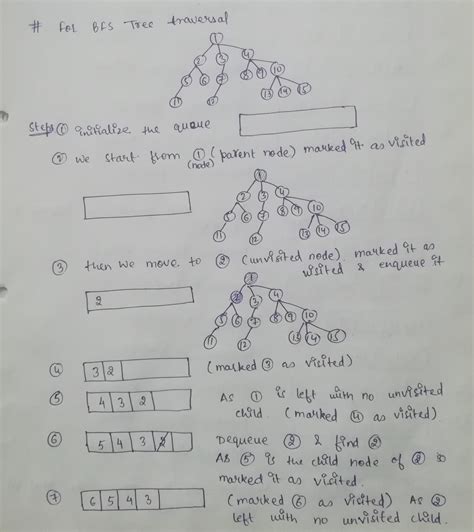 # For BFS Tree traversal
1
2 3 4
5 6 7 8 9 10
11 12 13 14 15
Steps ① initialize the queue
② we start from ① (parent node) marked it as visited
(node)
1
2 3 4
5 6 7 8 9 10
11 12 13 14 15
③ then we move to ② (unvisited node). marked it as
visited & enqueue it
2
1
2 3 4
5 6 7 8 9 10
11 12 13 14 15
④ 3 2 (marked ③ as visited)
⑤ 4 3 2 As ① is left with no unvisited
child. (marked ④ as visited)
⑥ 5 4 3 2 Dequeue ② & find ②
As ⑤ is the child node of ② so
marked it as visited.
⑦ 6 5 4 3 (marked ⑥ as visited) As ②
left with no unvisited child.